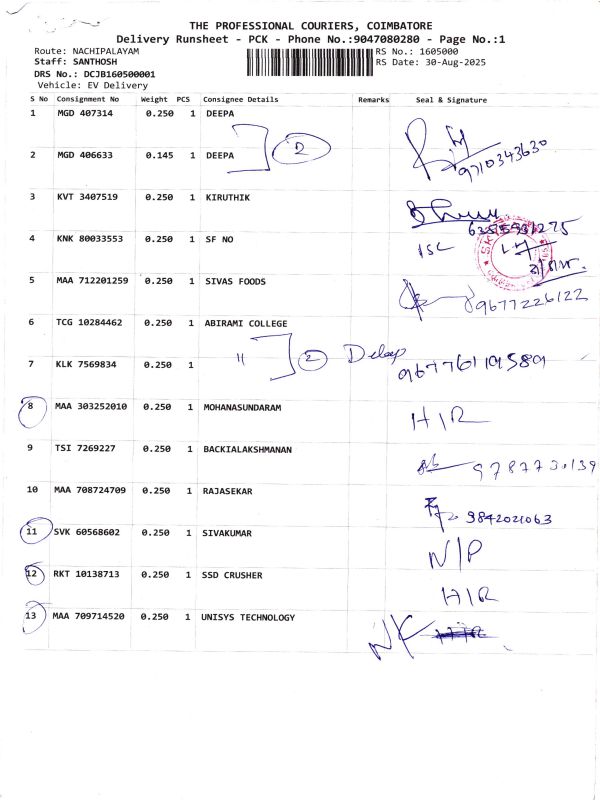 THE PROFESSIONAL COURIERS, COIMBATORE
Delivery Runsheet - PCK - Phone No.:9047080280 - Page No.:1
Route: NACHIPALAYAM RS No.: 1605000
Staff: SANTHOSH RS Date: 30-Aug-2025
DRS No.: DCJB160500001
Vehicle: EV Delivery
S No Consignment No Weight PCS Consignee Details Remarks Seal & Signature
1 MGD 407314 0.250 1 DEEPA
2
2 MGD 406633 0.145 1 DEEPA 9710343630
3 KVT 3407519 0.250 1 KIRUTHIK
4 KNK 80033553 0.250 1 SF NO
5 MAA 712201259 0.250 1 SIVAS FOODS 9677226122
6 TCG 10284462 0.250 1 ABIRAMI COLLEGE
7 KLK 7569834 0.250 1 " 2
8 MAA 303252010 0.250 1 MOHANASUNDARAM H/R
9 TSI 7269227 0.250 1 BACKIALAKSHMANAN
10 MAA 708724709 0.250 1 RAJASEKAR 9842021063
11 SVK 60568602 0.250 1 SIVAKUMAR N/P
12 RKT 10138713 0.250 1 SSD CRUSHER H/R
13 MAA 709714520 0.250 1 UNISYS TECHNOLOGY